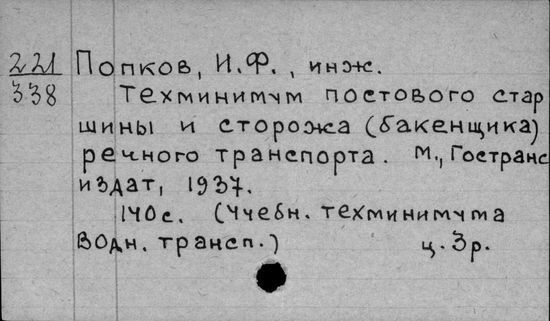 221 Попков, И.Ф., инж.
338 Техминимум постового стар
шины и сторожа (бакенщика)
речного транспорта. М., Гостранс
издат, 1937.
140с. (Учебн. техминимума
Водн. трансп.) ц. 3р.